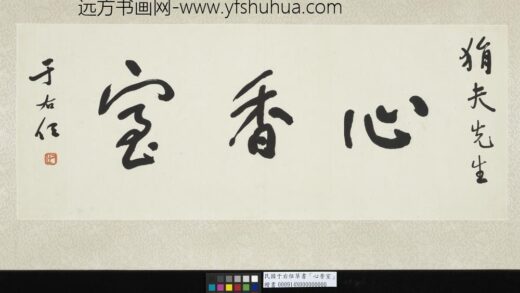 远方书画网-www.yfshuhua.com
狷夫先生
心香室
于右任
民國于右任草書「心香室」
橫書 000914X000000000